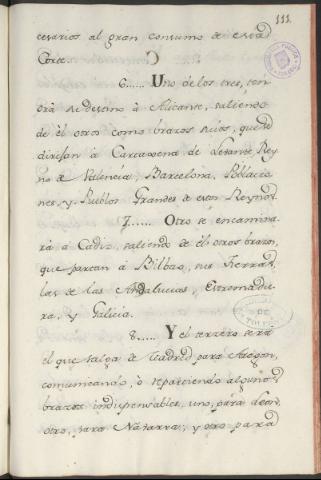 111.
cesarios al gran consumo de esta
Corte.
6...... Uno de los tres, ten
drá su destino à Alicante, saliendo
de él otros como brazos suios, que se
dirijan à Cartaxena de Levante, Rey
no de Valencia, Barcelona, Poblacio
nes, y Pueblos Grandes de estos Reynos.
7...... Otro se encamina
rá a Cadiz, saliendo de él otros brazos,
que partan à Bilbao, sus Tierras,
las de las Andalucias, Extremadu
ra, y Galicia.
8...... Y el terzero será
el que salga de Madrid para Aragon,
comunicando, ò repartiendo algunos
brazos indispensables, uno, para Leon,
otro, para Navarra, y otro para